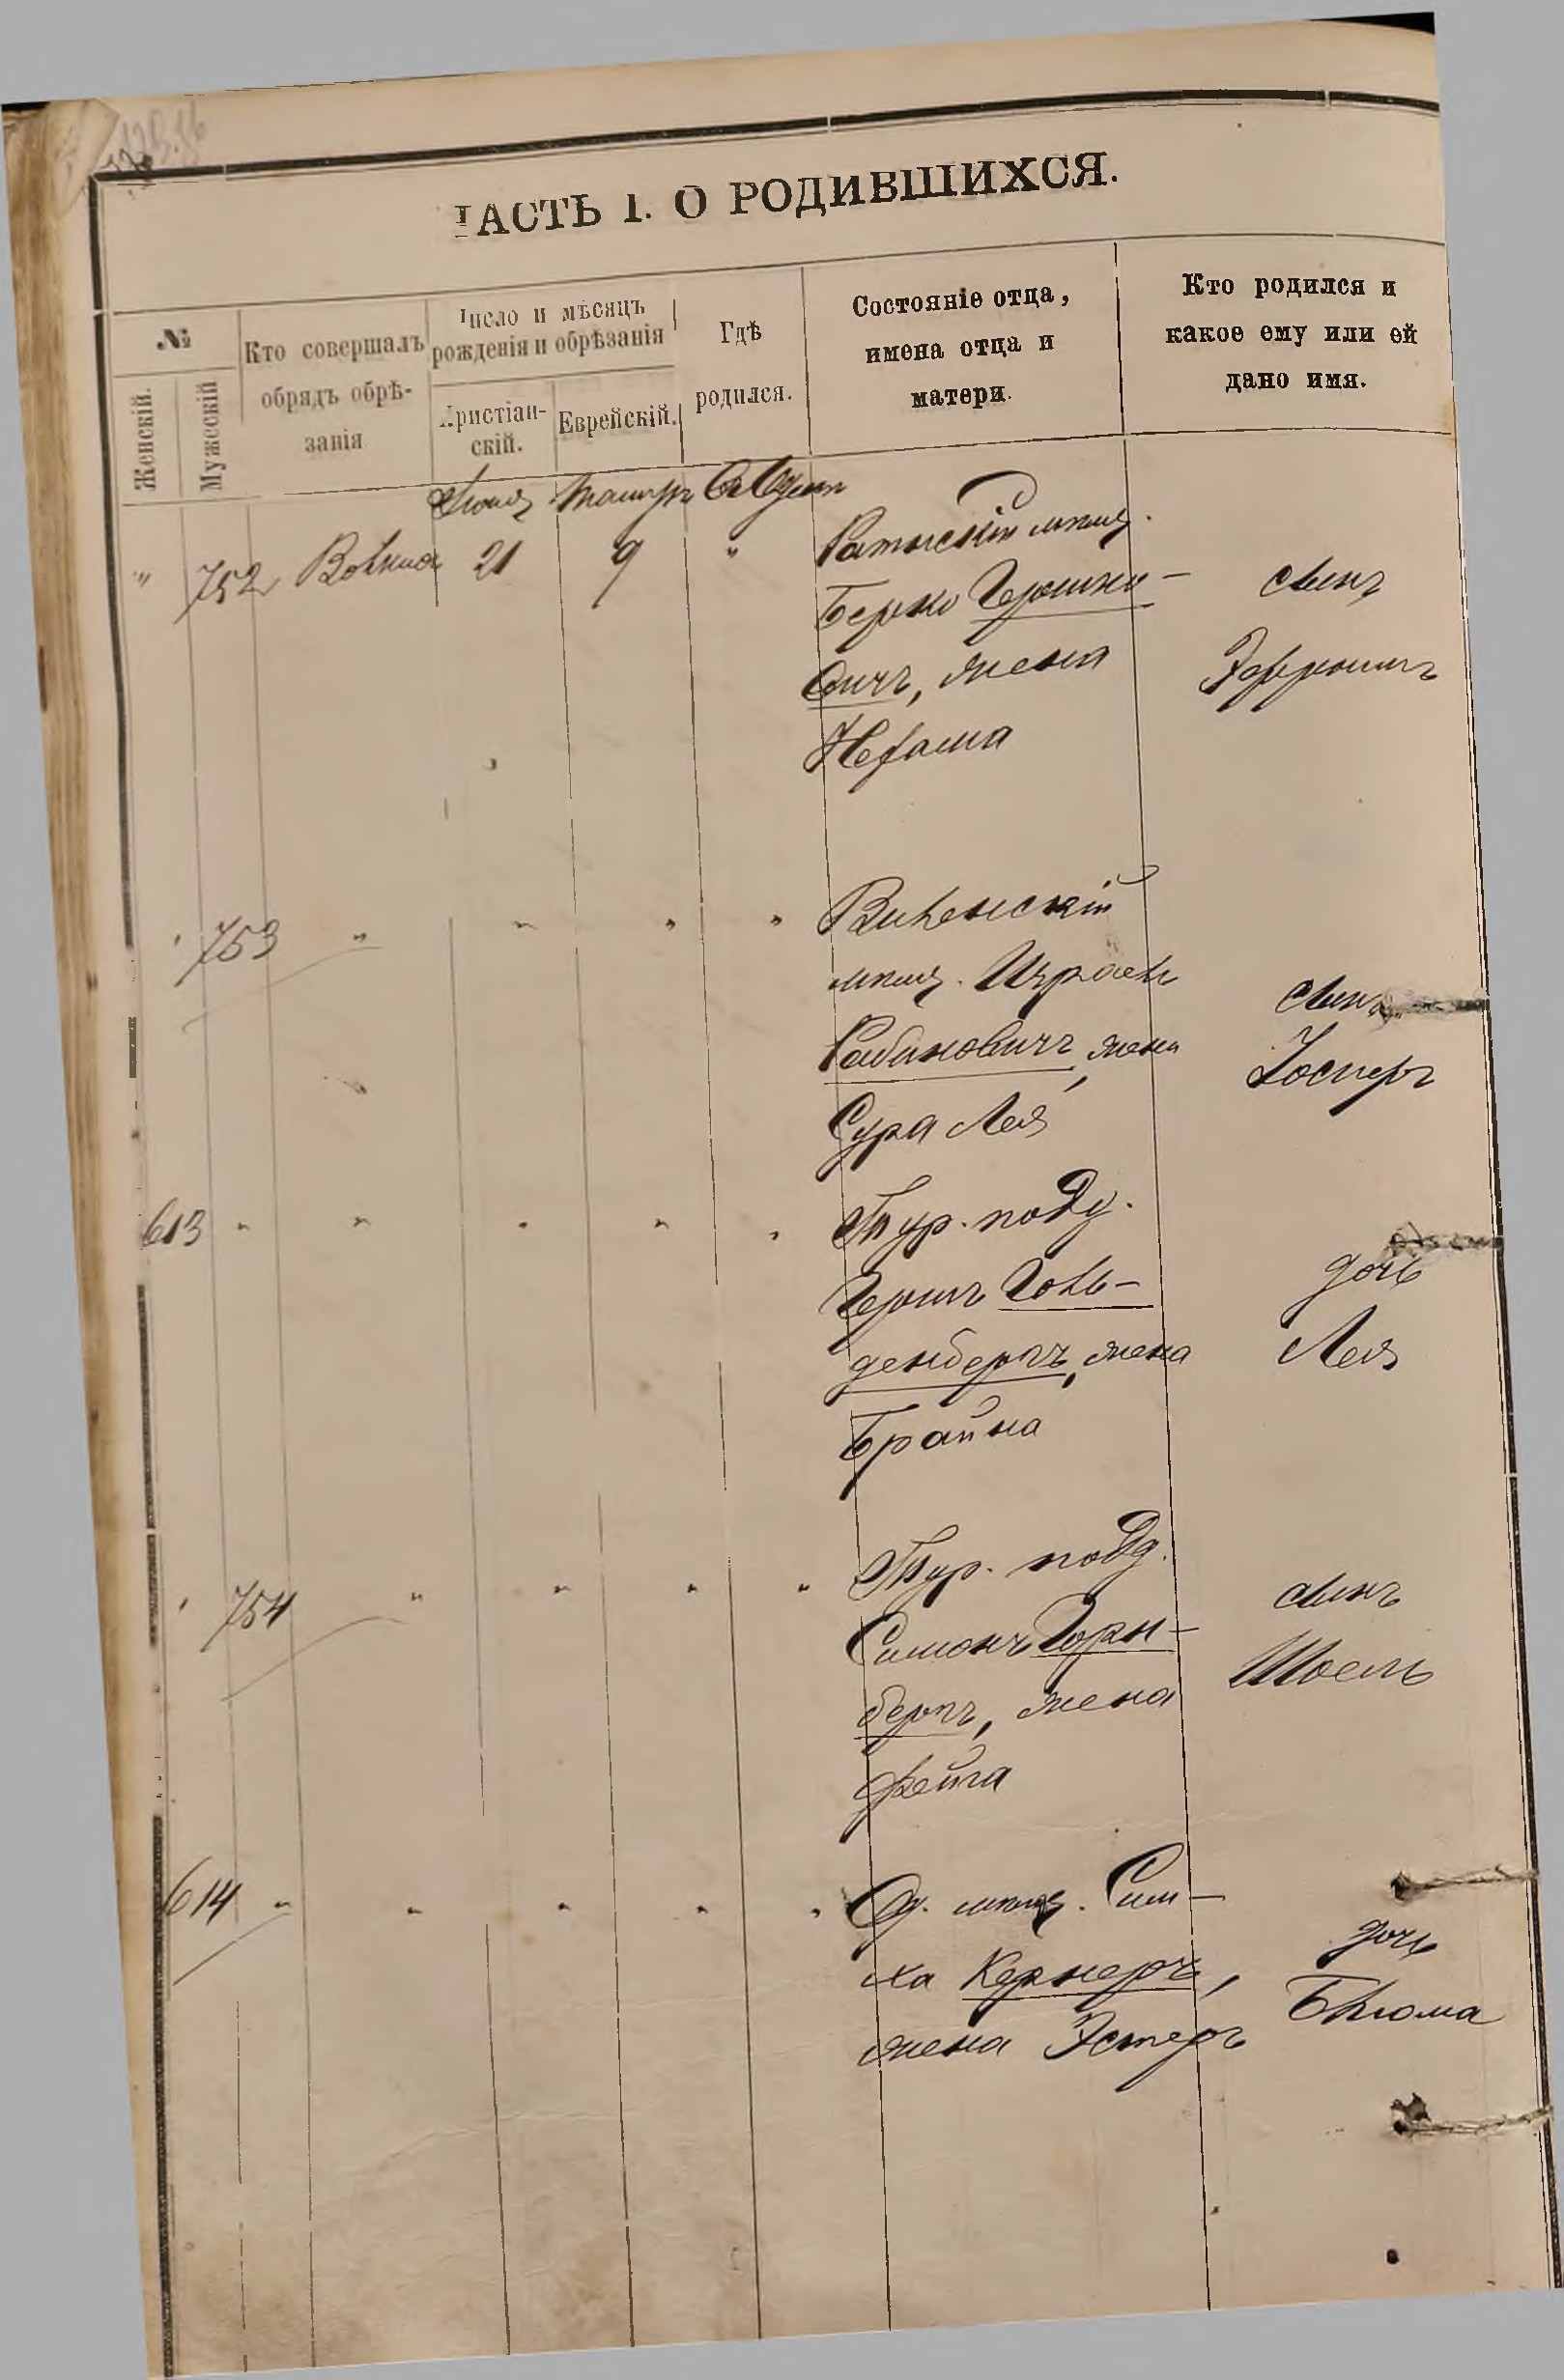 ЧАСТЬ I. О РОДИВШИХСЯ.
№
Женскій.
Мужескій
Кто совершалъ
обрядъ обрѣ-
занія
Число и мѣсяцъ
рожденія и обрѣзанія
Христіан-
скій.
Еврейскій.
Гдѣ
родился.
Состояніе отца,
имена отца и
матери.
Кто родился и
какое ему или ей
дано имя.
Въ Одессѣ
" 752 21 9 "
мѣщ.
Берко Гершко-
вичъ, жена
Нехама
сынъ
Эфроимъ
' 753 " " " "
Виленскій
мѣщ. Израель
Рабиновичъ, жена
Сура Лея
сынъ
Іосиеръ
613 " " " " "
Тур. подд.
Гершъ Голь-
денбергъ, жена
Брайна
дочь
Лея
' 754 " " " "
Тур. подд.
Симонъ Горн-
бергъ, жена
Фейга
сынъ
Шоель
614 " " " " "
Од. мѣщ. Сим-
ха Кернеръ,
жена Эстеръ
дочь
Блюма